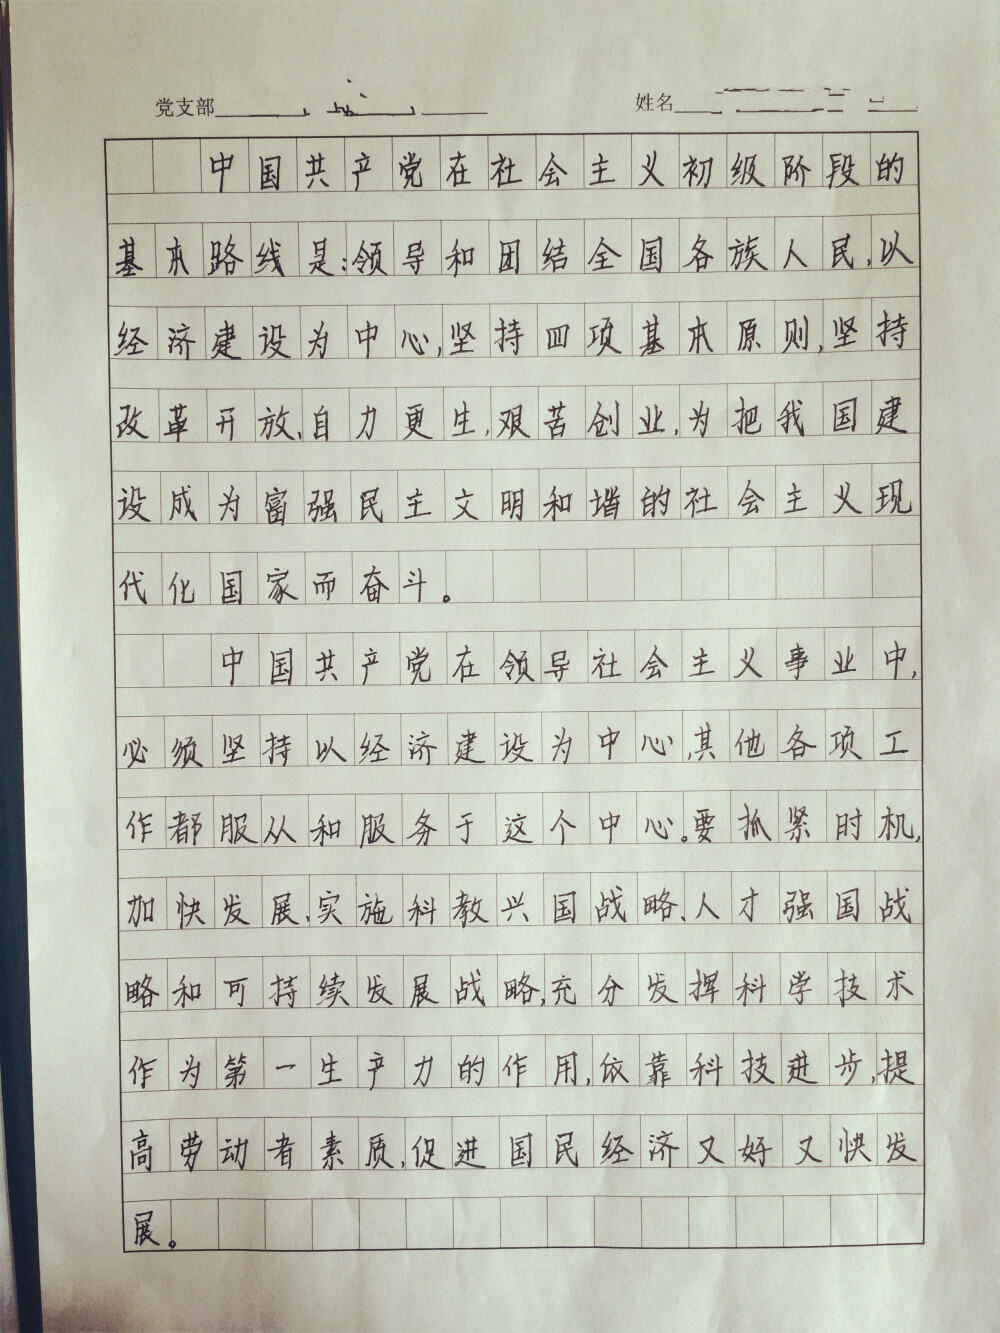 党支部 姓名
中国共产党在社会主义初级阶段的
基本路线是:领导和团结全国各族人民,以
经济建设为中心,坚持四项基本原则,坚持
改革开放,自力更生,艰苦创业,为把我国建
设成为富强民主文明和谐的社会主义现
代化国家而奋斗。
中国共产党在领导社会主义事业中,
必须坚持以经济建设为中心,其他各项工
作都服从和服务于这个中心。要抓紧时机,
加快发展,实施科教兴国战略、人才强国战
略和可持续发展战略,充分发挥科学技术
作为第一生产力的作用,依靠科技进步,提
高劳动者素质,促进国民经济又好又快发
展。